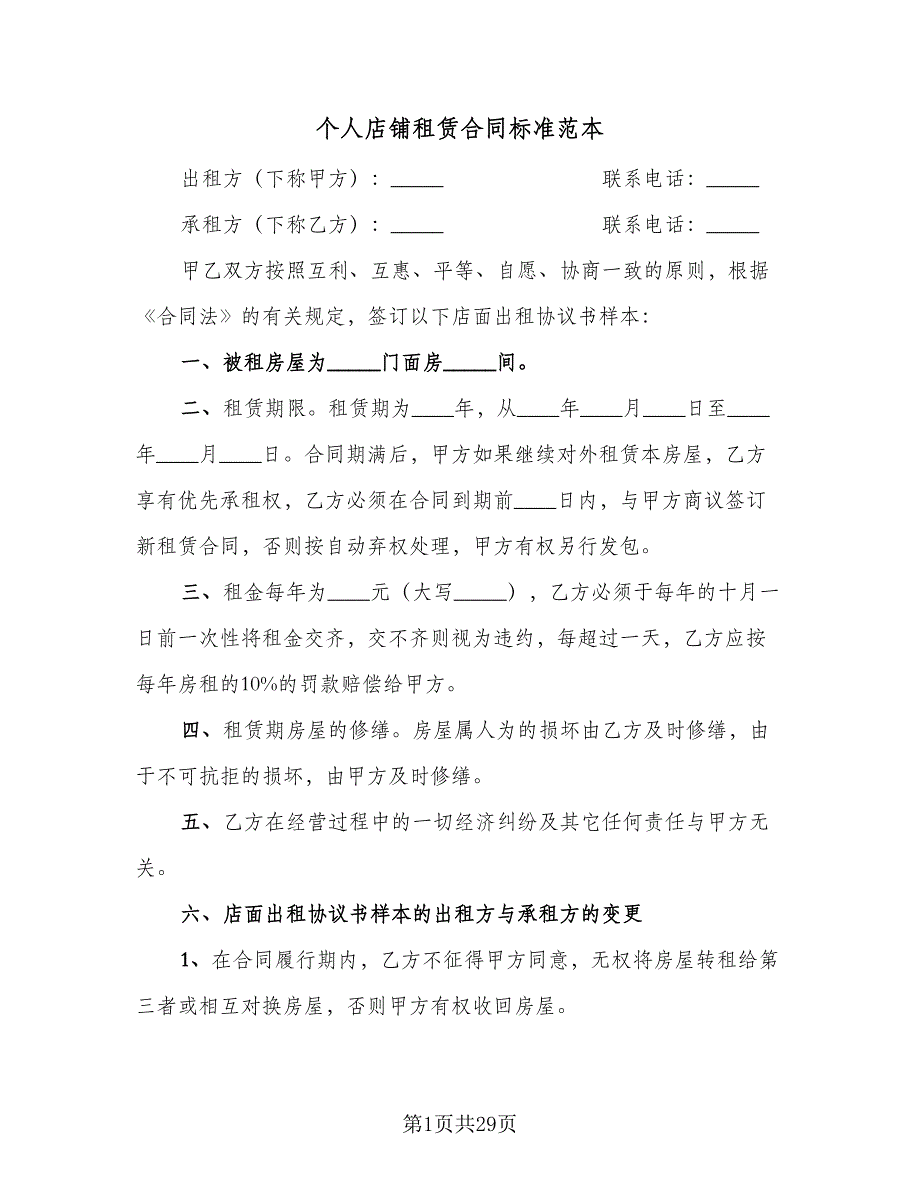 个人店铺租赁合同标准范本
出租方（下称甲方）：_____ 联系电话：_____
承租方（下称乙方）：_____ 联系电话：_____
甲乙双方按照互利、互惠、平等、自愿、协商一致的原则，根据
《合同法》的有关规定，签订以下店面出租协议书样本：
一、被租房屋为_____门面房_____间。
二、租赁期限。租赁期为____年，从____年____月____日至____
年____月____日。合同期满后，甲方如果继续对外租赁本房屋，乙方
享有优先承租权，乙方必须在合同到期前____日内，与甲方商议签订
新租赁合同，否则按自动弃权处理，甲方有权另行发包。
三、租金每年为____元（大写_____），乙方必须于每年的十月一
日前一次性将租金交齐，交不齐则视为违约，每超过一天，乙方应按
每年房租的10%的罚款赔偿给甲方。
四、租赁期房屋的修缮。房屋属人为的损坏由乙方及时修缮，由
于不可抗拒的损坏，由甲方及时修缮。
五、乙方在经营过程中的一切经济纠纷及其它任何责任与甲方无
关。
六、店面出租协议书样本的出租方与承租方的变更
1、在合同履行期内，乙方不征得甲方同意，无权将房屋转租给第
三者或相互对换房屋，否则甲方有权收回房屋。
第1页共29页